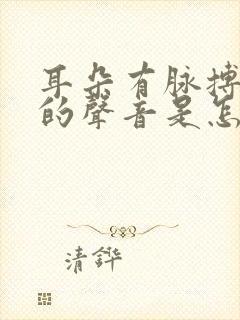 耳朵有脉搏
的聲音是怎
清鏵